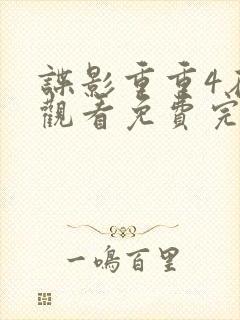 諜影重重4
觀看免費完
一鳴百里